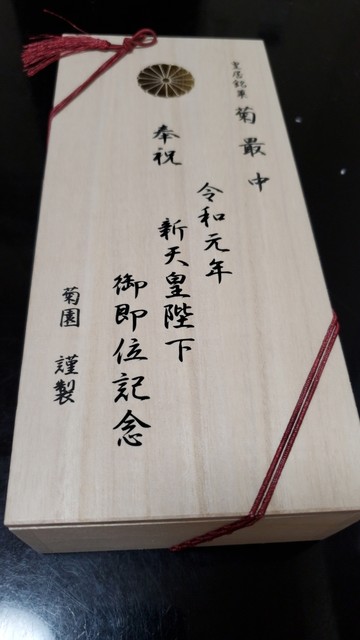 皇居銘菓
菊最中
奉祝
令和元年
新天皇陛下
御即位記念
菊園 謹製